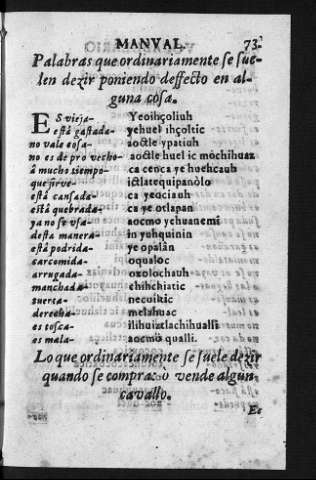 MANVAL. 73.
Palabras que ordinariamente se sue-
len dezir poniendo deffecto en al-
guna cosa.
ES vieja- Yeoihçoliuh
està gastada- yehuel ihçoltic
no vale cosa- aoctle ypatiuh
no es de pro vecho- aoctle huel ic mochihuaz
â mucho tiempo- ca cenca ye huehcauh
que sirve- ictlatequipanòlo
està cansada- ca yeociauh
està quebrada- ca ye otlapan
ya no se vsa- aocmo ychuanemi
desta manera- in yuhquinin
està podrida- ye opalân
carcomida- oqualoc
arrugada- oxolochauh
manchada- chihchiatic
tuerta- necuiltic
derecha- melahuac
es tosca- ilihuiztlachihualli
es mala- aocmo qualli.
Lo que ordinariamente se suele dezir
quando se compra ò vende algun
cavallo.
Es